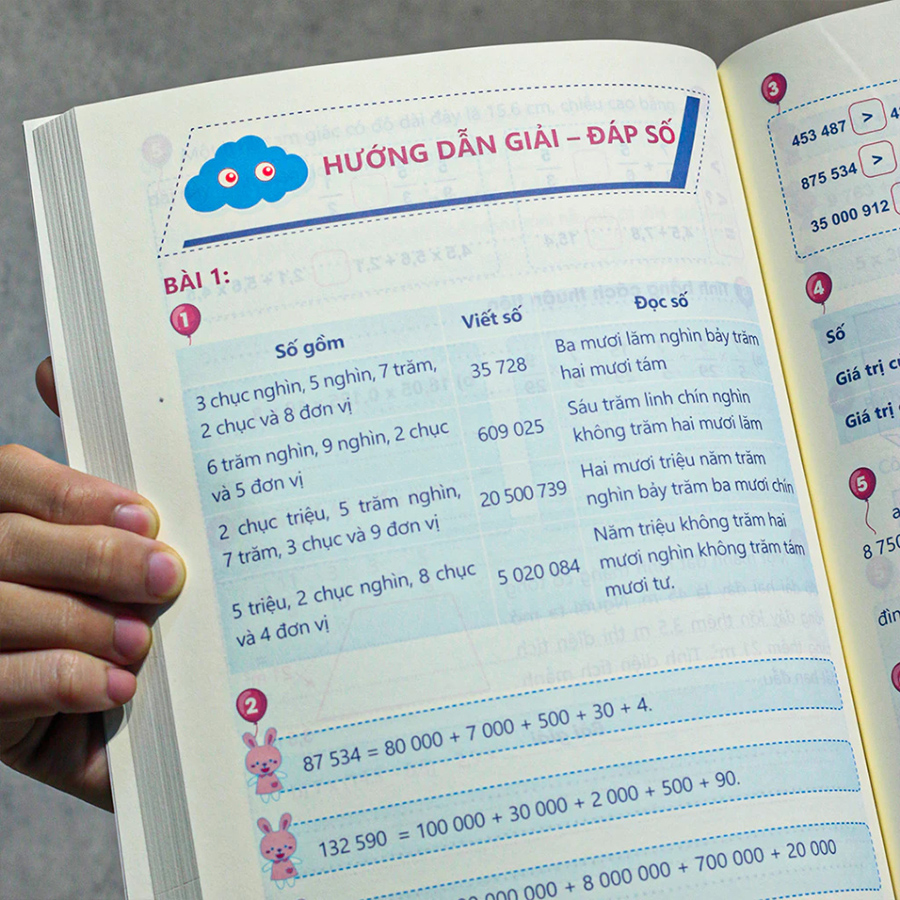 HƯỚNG DẪN GIẢI – ĐÁP SỐ
BÀI 1:
1
Số gồm
Viết số
Đọc số
3 chục nghìn, 5 nghìn, 7 trăm,
2 chục và 8 đơn vị
35 728
Ba mươi lăm nghìn bảy trăm
hai mươi tám
6 trăm nghìn, 9 nghìn, 2 chục
và 5 đơn vị
609 025
Sáu trăm linh chín nghìn
không trăm hai mươi lăm
2 chục triệu, 5 trăm nghìn,
7 trăm, 3 chục và 9 đơn vị
20 500 739
Hai mươi triệu năm trăm
nghìn bảy trăm ba mươi chín
5 triệu, 2 chục nghìn, 8 chục
và 4 đơn vị
5 020 084
Năm triệu không trăm hai
mươi nghìn không trăm tám
mươi tư.
2
87 534 = 80 000 + 7 000 + 500 + 30 + 4.
132 590 = 100 000 + 30 000 + 2 000 + 500 + 90.
000 000 + 8 000 000 + 700 000 + 20 000
3
453 487 >
875 534 >
35 000 912
4
Số
Giá trị
Giá trị
5
a
8 750